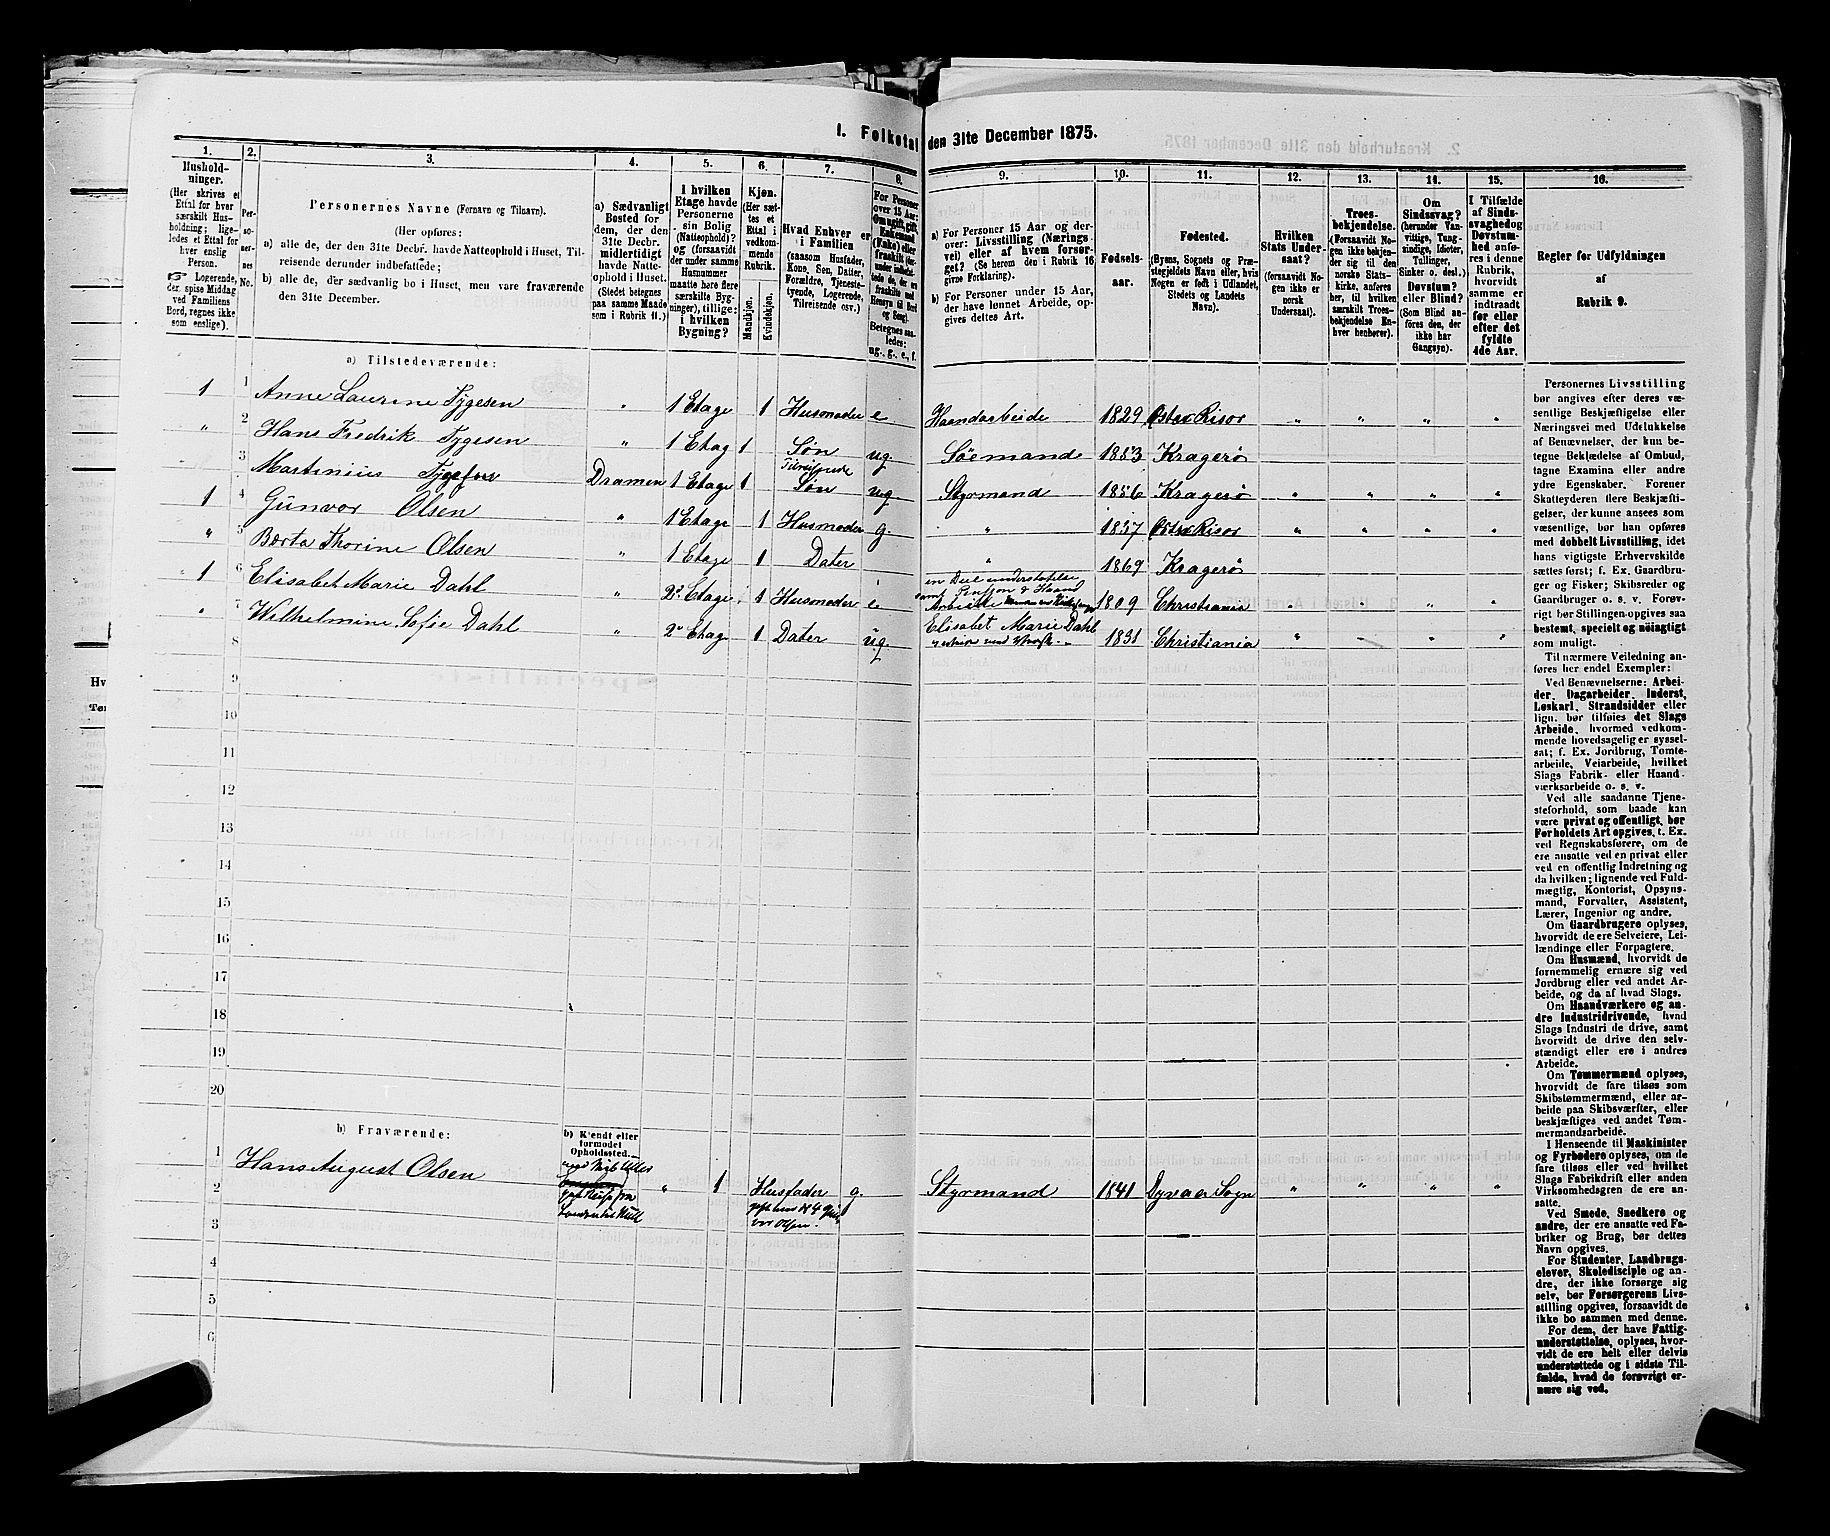 1. Folketal den 31te December 1875.
1. 2. 3. 4. 5. 6. 7. 8. 9. 10. 11. 12. 13. 14. 15. 16.
Hushold-
ninger.
(Her skrives et
Ettal for hver
særskilt Hus-
holdning; lige-
ledes et Ettal for
hver enslig
Person.
☞ Logerende,
der spise Middag
ved Familiens
Bord, regnes ikke
som enslige).
Per-
so-
ner-
nes
No.
Personernes Navne (Fornavn og Tilnavn).
(Her opføres:
a) alle de, der den 31te Decbr. havde Natteophold i Huset, Til-
reisende derunder indbefattede;
b) alle de, der sædvanlig bo i Huset, men vare fraværende
den 31te December.
a) Sædvanligt
Bosted for
dem, der den
31te Decbr.
midlertidigt
havde Natte-
ophold i Huset.
(Stedet betegnes
paa samme Maade
som i Rubrik 11.)
I hvilken
Etage havde
Personerne
sin Bolig
(Natteophold)?
og (forsaavidt
der under samme
Husnummer
maatte høre flere
særskilte Byg-
ninger), tillige:
i hvilken
Bygning?
Kjøn.
(Her sæt-
tes et
Ettal i
vedkom-
mende
Rubrik.
Mandkjøn.
Kvindekjøn.
Hvad Enhver er
i Familien
(saasom Husfader,
Kone, Søn, Datter,
Forældre, Tjeneste-
tyende, Logerende,
Tilreisende osv.)
For Personer
over 15 Aar:
Om ugift, gift,
Enkemand
(Enke) eller
fraskilt
Betegnes saa-
ledes:
ug., g., e., f.
a) For Personer 15 Aar og der-
over: Livsstilling (Nærings-
vei) eller af hvem forsør-
get? (Se herom den i Rubrik 16
givne Forklaring).
b) For Personer under 15 Aar,
der have lønnet Arbeide, op-
gives dettes Art.
Fødsels-
aar.
Fødested.
(Byens, Sognets og Præ-
stegjeldets Navn eller, hvis
Nogen er født i Udlandet,
Stedets og Landets
Navn).
Hvilken
Stats Under-
saat?
(forsaavidt No-
gen ikke er
norsk
Undersaat).
Troes-
bekjendelse.
(Forsaavidt No-
gen ikke bekjen-
der sig til den
norske Stats-
kirke, anføres
her, til hvilken
særskilt Troes-
bekjendelse En-
hver henhører).
Om
Sindssvag?
(herunder Van-
vittige, Tung-
sindige, Idioter,
Tullinger,
Sinker o. desl.)
Døvstum?
eller Blind?
(Som Blind an-
føres den, der
ikke har
Gangsyn).
I Tilfælde
af Sinds-
svaghed og
Døvstum-
hed anfø-
res i denne
Rubrik,
hvorvidt
samme er
indtraadt
før eller
efter det
fyldte
4de Aar.
Regler for Udfyldningen
af
Rubrik 9.
a) Tilstedeværende:
1 1 Anne Laurine Tygesen " 1 Etage 1 Husmoder e Haandarbeide 1829 Østre Risør " " " "
" 2 Hans Fredrik Tygesen " 1 Etag 1 Søn ug. Søemand 1853 Kragerø
3 Martinius Dramen 1 Etage 1 Søn ug. Styrmand 1856 Kragerø " " " "
1 4 Gunvor Olsen " 1 Etage 1 Husmoder g. " 1837 Østre Risør " " " "
" 5 Berta Thorine Olsen " 1 Etage 1 Dater " 1869 Kragerø
1 6 Elisabet Marie Dahl 2 Etage 1 Husmoder e en Deel understøttelse
Arbeide 1809 Christiania " " " "
" 7 Wilhelmine Sofie Dahl " 2 Etage 1 Dater ug. Elisabet Marie Dahl
1831 Christiania " " " "
8
9
10
11
12
13
14
15
16
17
18
19
20
b) Fraværende:
b) Kjendt eller
formodet
Opholdssted.
1 Hans August Olsen " 1 Husfader g. Styrmand 1841 Sogn " " " "
2
3
4
5
6
Personernes Livsstilling
bør angives efter deres væ-
sentlige Beskjæftigelse eller
Næringsvei med Udelukkelse
af Benævnelser, der kun be-
tegne Beklædelse af Ombud,
tagne Examina eller andre
ydre Egenskaber. Forener
Skatteyderen flere Beskjæfti-
gelser, der kunne ansees som
væsentlige, bør han opføres
med dobbelt Livsstilling, idet
hans vigtigste Erhvervskilde
sættes først; f. Ex. Gaardbru-
ger og Fisker; Skibsreder og
Gaardbruger o. s. v. Forøv-
rigt bør Stillingen opgives saa
bestemt, specielt og nøiagtigt
som muligt.
Til nærmere Veiledning an-
føres her endel Exempler:
Ved Benævnelserne: Arbei-
der, Dagarbeider, Inderst,
Løskarl, Strandsidder eller
lign. bør tilføies det Slags
Arbeide, hvormed vedkom-
mende hovedsagelig er syssel-
sat; f. Ex. Jordbrug, Tomte-
arbeide, Veiarbeide, hvilket
Slags Fabrik- eller Haand-
værksarbeide o. s. v.
Ved alle saadanne Tjene-
steforhold, som baade kan
være privat og offentligt, bør
Forholdets Art opgives, t. Ex.
ved Regnskabsførere, om de
ere ansatte ved en privat eller
ved en offentlig Indretning og
da hvilken; lignende ved Fuld-
mægtig, Kontorist, Opsyns-
mand, Forvalter, Assistent,
Lærer, Ingeniør og andre.
Om Gaardbrugere oplyses,
hvorvidt de ere Selveiere, Lei-
lændinge eller Forpagtere.
Om Husmænd, hvorvidt de
fornemmelig ernære sig ved
Jordbrug eller ved andet Ar-
beide, og da af hvad Slags.
Om Haandværkere og an-
dre Industridrivende, hvad
Slags Industri de drive, samt
hvorvidt de drive den selv-
stændigt eller ere i andres
Arbeide.
Om Tømmermænd oplyses,
hvorvidt de fare tilsøs som
Skibstømmermænd, eller ar-
beide paa Skibsværfter, eller
beskjæftiges ved andet Tøm-
mermandsarbeide.
I Henseende til Maskinister
og Fyrbødere oplyses, om de
fare tilsøs eller ved hvilket
Slags Fabrikdrift eller anden
Virksomhedsgren de ere an-
satte.
Ved Smede, Snedkere og
andre, der ere ansatte ved Fa-
briker og Brug, bør dettes
Navn opgives.
For Studenter, Landbrugs-
elever, Skoledisciple og an-
dre, der ikke forsørge sig
selv, bør Forsørgerens Livs-
stilling opgives, forsaavidt de
ikke bo sammen med denne.
For dem, der have Fattig-
understøttelse, oplyses, hvor-
vidt de ere helt eller delvis
understøttede og i sidste Til-
fælde, hvad de forøvrigt er-
nære sig ved.